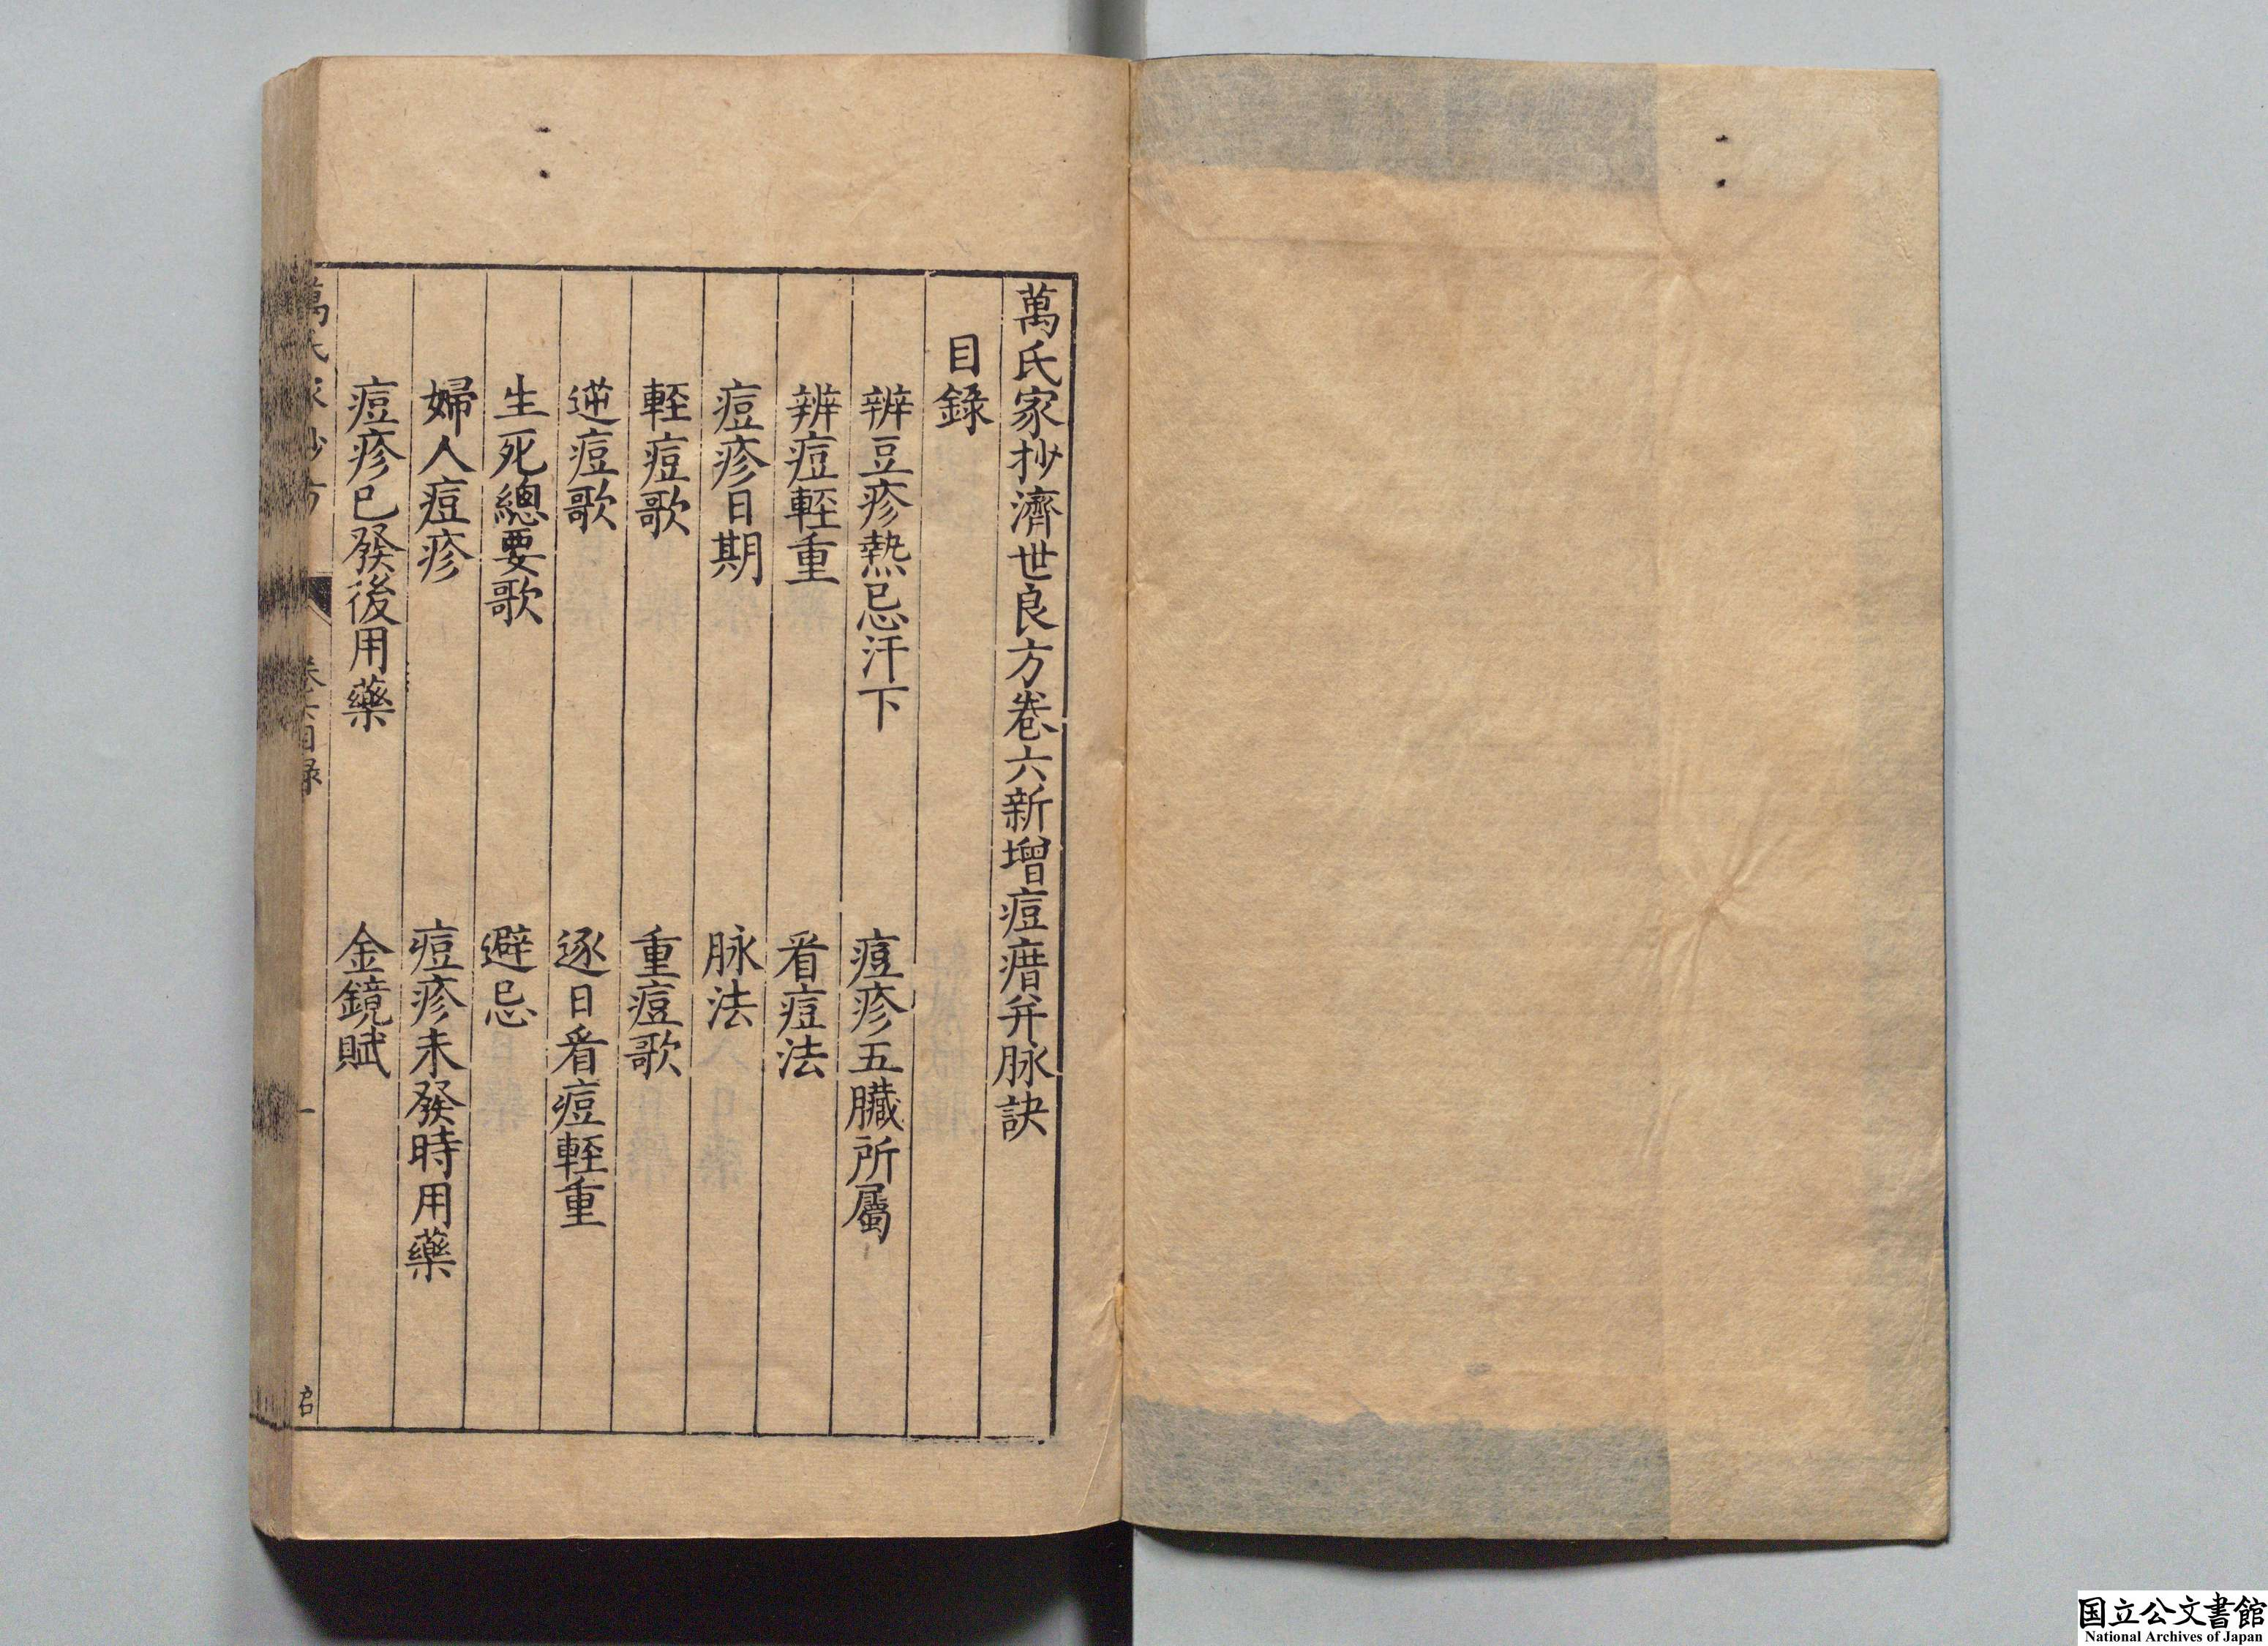 萬氏家抄濟世良方卷六新增痘瘄并脉訣
目錄
辨豆疹熱忌汗下　痘疹五臟所屬
辨痘輊重　看痘法
痘疹日期　脉法
輊痘歌　重痘歌
逆痘歌　逐日看痘輊重
生死總要歌　避忌
婦人痘疹　痘疹未發時用藥
痘疹已發後用藥　金鏡賦
萬氏家抄方　卷六目録　一
国立公文書館
National Archives of Japan